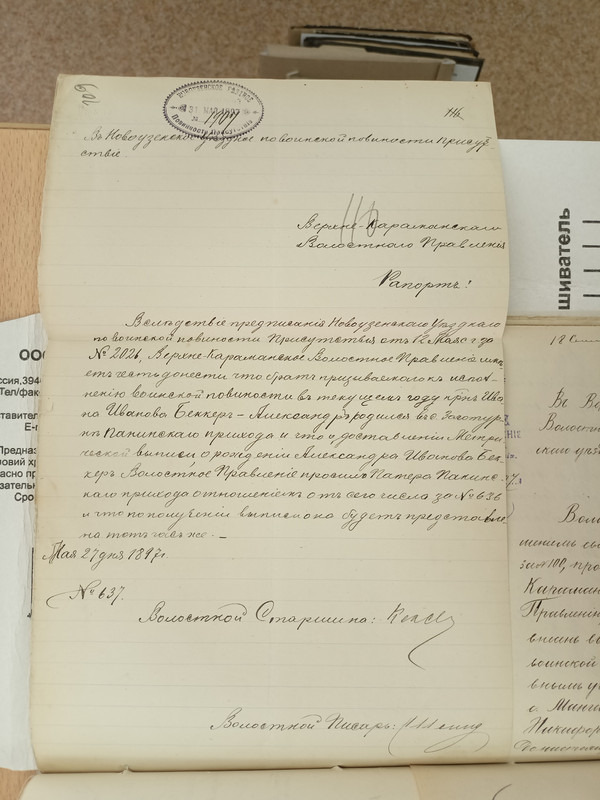 602
31 МАЯ 1897
№ 1907
114.
Въ Новоузенское уѣздное по воинской повинности Присут-
ствіе
116
Верхне-Караманскаго
Волостнаго Правленія
Рапортъ!
Вслѣдствіе предписанія Новоузенскаго Уѣзднаго
по воинской повинности Присутствія отъ 12 Мая с. года
№ 2026, Верхне-Караманское Волостное Правленіе имѣ-
етъ честь донести что братъ призываемаго къ испол-
ненію воинской повинности въ текущемъ году Ива
на Иванова Беккеръ – Александръ родился въ с.
Панинскаго прихода и что о доставленіи Метри-
ческой выписи о рожденіи Александра Иванова Бек-
керъ Волостное Правленіе проситъ Патера Панинс-
каго прихода отношеніемъ отъ сего числа за № 636
и что по полученіи выпись она будетъ представле
на тотъ часъ же. –
Мая 27 дня 1897 г.
№ 637.
Волостной Старшина:
Волостной Писарь:
шиватель
ООО
ссия,394
Тел/фак
ставител
E-m
Предназ
ловий хр
асно пр
зательн
Сро
18
Въ
Волост
скаго уѣз
Воло
за № 100, про
Караман
Правлен
воинской